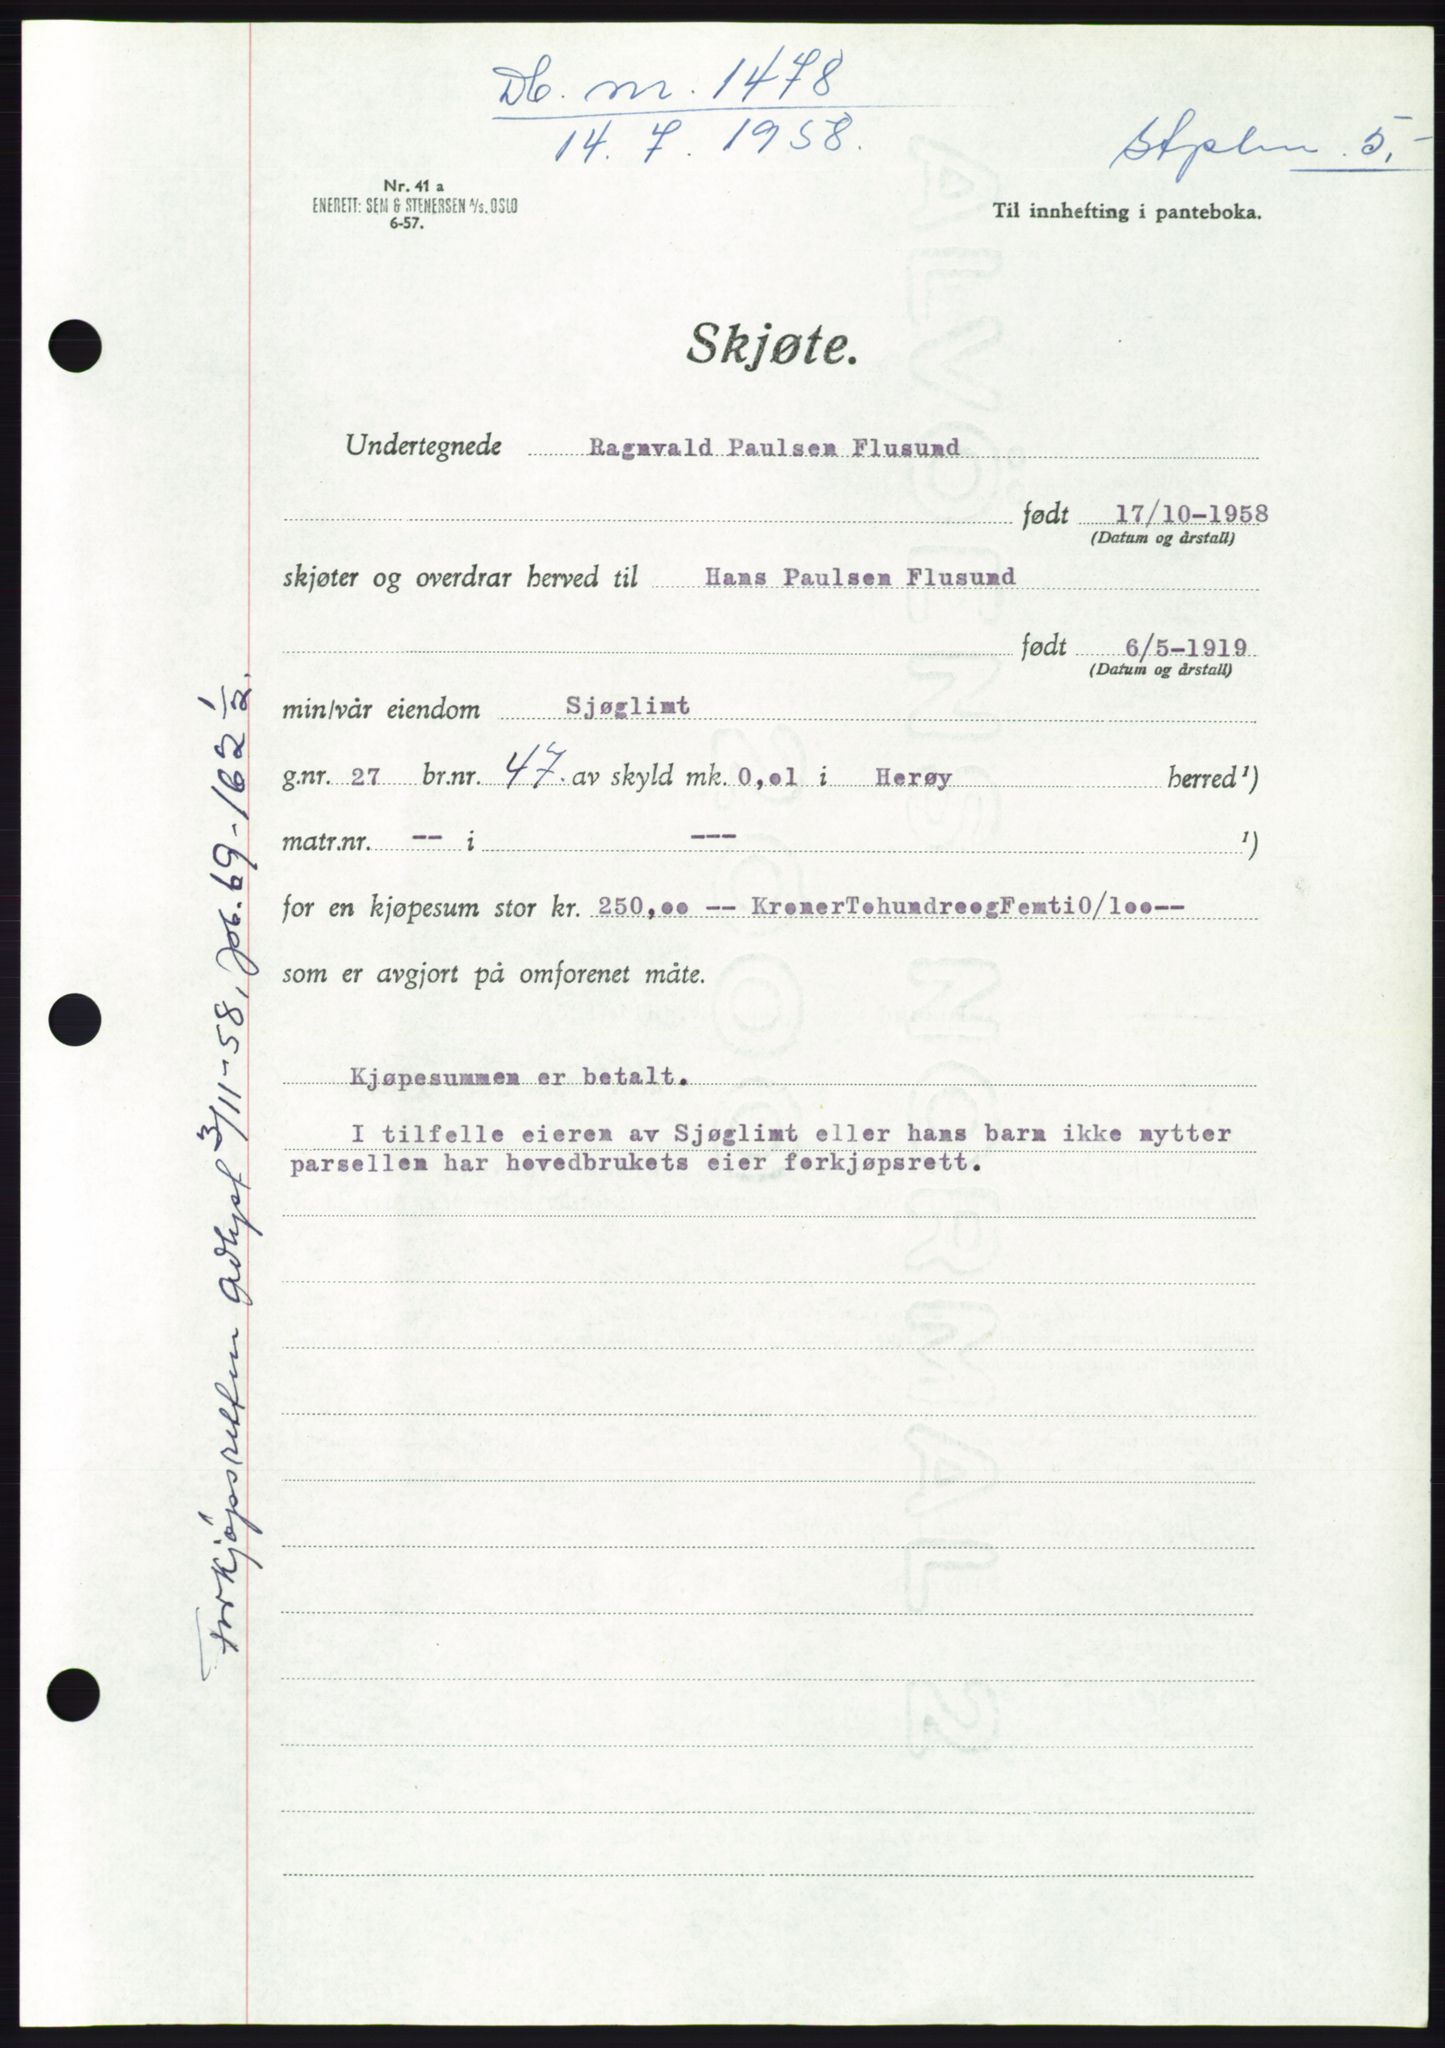 Db. nr. 1478
14. 7. 1958.
Stplm. 5,-
Nr. 41 a
ENERETT: SEM & STENERSEN A/S. OSLO
6-57.
Til innhefting i panteboka.
Skjøte.
Undertegnede Ragnvald Paulsen Flusund
født 17/10-1958
(Datum og årstall)
skjøter og overdrar herved til Hans Paulsen Flusund
født 6/5-1919
(Datum og årstall)
min/vår eiendom Sjøglimt
g.nr. 27 br.nr. 47. av skyld mk. 0,01 i Herøy herred¹)
matr.nr. -- i --- ¹)
for en kjøpesum stor kr. 250,00 -- KronerTohundreogFemti0/100--
som er avgjort på omforenet måte.
Kjøpesummen er betalt.
I tilfelle eieren av Sjøglimt eller hans barn ikke nytter
parsellen har hovedbrukets eier forkjøpsrett.
Forkjøpsretten avlyst 3/11-58, jnr. 69-162 1/2.
ALVÖENS NORMAL 2